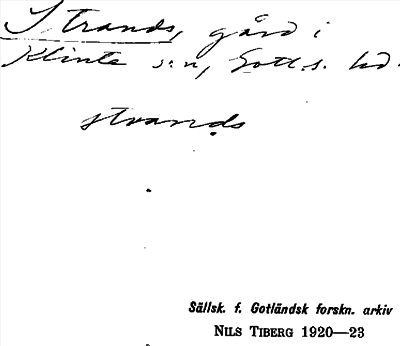 Strands, gård i
Klinte s:n, Gotl.s. hd.
strands
Sällsk. f. Gotländsk forskn. arkiv
NILS TIBERG 1920—23